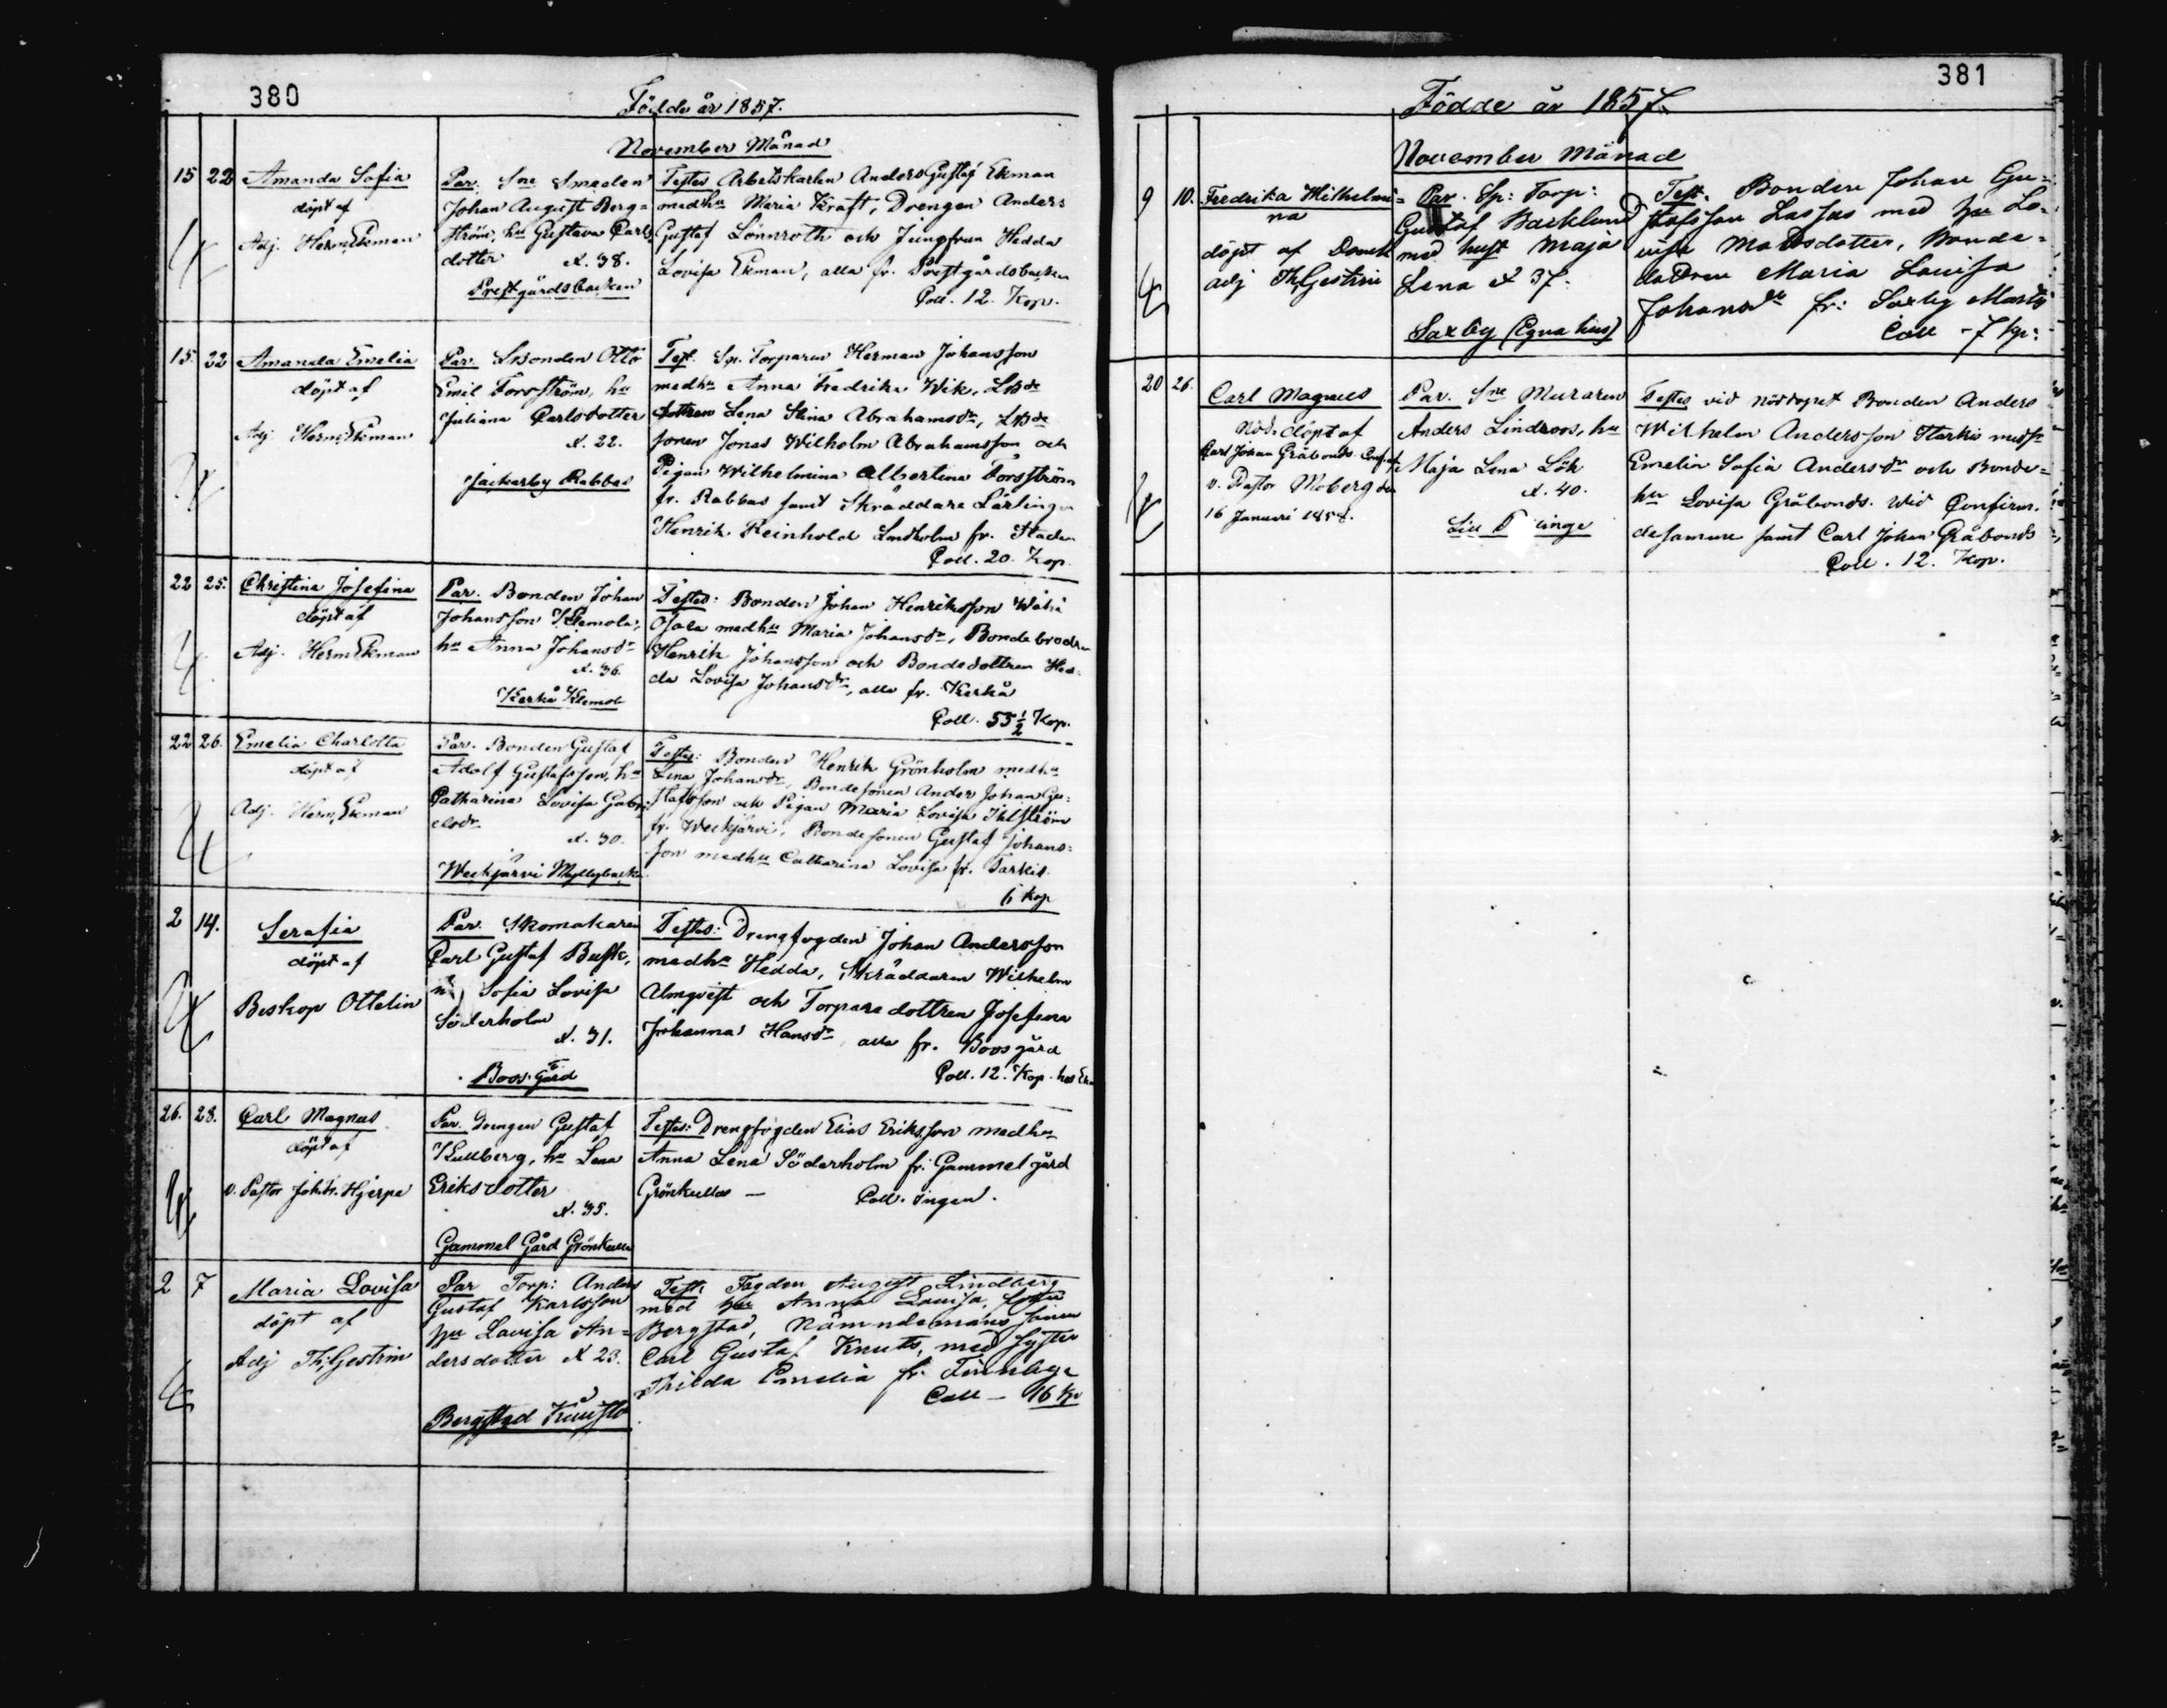 380
Födde år 1857.
November Månad
15 22 Amanda Sofia
döpt af
Adj. Herm. Ekman
Par. Sne Smeden
Johan August Berg=
ström, hu Gustava Carls
dotter æt. 38.
Prestgårdsbacken
Testes Arbetskarlen Anders Gustaf Ekman
med hu Maria Kraft, Drengen Anders
Gustaf Lönnroth och Jungfrun Hedda
Lovisa Ekman, alla fr. Prestgårdsbacken
Coll. 12. Kop.
15. 22 Amanda Emelia
döpt af
Adj. Herm. Ekman
Par. Lbonden Otto
Emil Forsström, hu
Juliana Carlsdotter
æt. 22.
Jackarby Rabbas
Test. Sp. Torparen Herman Johansson
med hu Anna Fredrika Wik, Lbde
dottren Lena Stina Abrahamsdr, Lbde
sonen Jonas Wilholm Abrahamsson och
Pigan Wilhelmina Albertina Forsström
fr. Rabbas samt Skräddare Lärlingen
Henrik Reinhold Lindholm fr. Staden
Coll. 20. Kop.
22 25. Christina Josefina
döpt af
Adj. Herm. Ekman
Par. Bonden Johan
Johansson Klemola,
hu Anna Johansdr
æt. 36.
Kerko Klemola
Testes: Bonden Johan Henriksson
Ojala med hu Maria Johansdr, Bondebrodren
Henrik Johansson och Bondedottren Hed=
da Lovisa Johansdr, alla fr. Kerko
Coll. 55 1/2 Kop.
22 26. Emelia Charlotta
döpt af
Adj. Herm. Ekman
Par. Bonden Gustaf
Adolf Gustafsson, hu
Catharina Lovisa Gabri
elsdr
æt. 30.
Weckjärvi Myllybacka
Testes: Bonden Henrik Grönholm med hu
Lena Johansdr, Bondesonen Ander Johan Gu=
stafsson och Pigan Maria Lovisa Ihlström
fr. Weckjärvi, Bondesonen Gustaf Johans=
son med hu Catharina Lovisa fr. Tarkis.
6 Kop
2 14. Serafia
döpt af
Biskop Ottelin
Par. Skomakaren
Carl Gustaf Busk,
hu Sofia Lovisa
Söderholm
æt. 31.
Boos Gård
Testes: Drengfogden Johan Andersson
med hu Hedda, Skräddaren Wilhelm
Almqvist och Torparedottren Josefina
Johanna Hansdr alla fr. Boos gård
Coll. 12. Kop.
26. 28. Carl Magnus
döpt af
v. Pastor Joh. Fr. Hjerpe
Par. Drengen Gustaf
Kullberg, hu Lena
Eriksdotter
æt. 35.
Gammel Gård Grönkulla
Testes: Drengfogden Elias Eriksson med hu
Anna Lena Söderholm fr. Gammelgård
Grönkulla — Coll. ingen.
2 7 Maria Lovisa
döpt af
Adj Th. Gestrin
Par Torp: Anders
Gustaf Karlsson
hu Lovisa An=
dersdotter æt 23.
Bergstad
Test. Fogden August Lindberg
med hu Anna Lovisa, fr.
Bergstad, Nämndemans sonen
Carl Gustaf Knuts, med syster
Thilda Emelia fr. Finnby
Coll — 16 Kp
381
Födde år 1857.
November Månad
9 10. Fredrika Wilhelmi=
na
döpt af
adj Th Gestrin
Par. Sp: Torp:
Gustaf Backlund
med hust Maja
Lena æt 37.
Saxby (Egna hus)
Test. Bonden Johan Gu=
stafsson Lassas med hu Lo=
uisa Matsdotter, Bonde=
dottren Maria Louisa
Johansdr fr: Saxby Mårts
Coll - 7 kp:
20 26. Carl Magnus
Nöd. döpt af
Carl Johan Gråbonds. Conf. af
v. Pastor Moberg den
16 Januari 1858.
Par. Sne Muraren
Anders Lindroos, hu
Maja Lena Lök
æt. 40.
Testes vid nöddopet Bonden Anders
Wilhelm Andersson Starkis med hu
Emelie Sofia Andersdr och Bonde=
hu Lovisa Gråbonds. Wid Confirm.
desamme samt Carl Johan Gråbonds
Coll. 12. Kop.